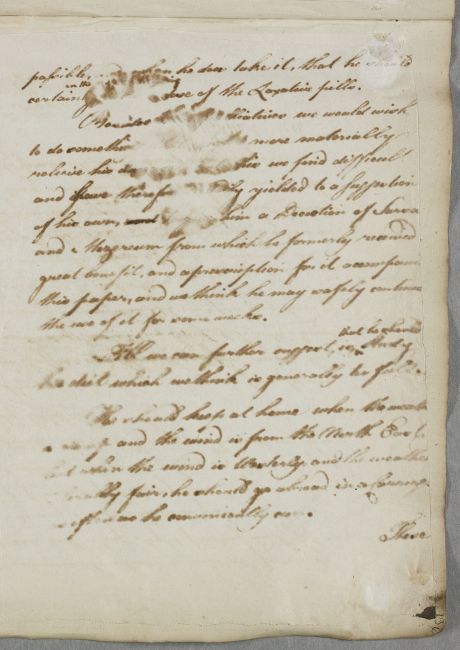 possible, when he does take it, that he should
in the
certain dose of the Laxative pills.
Besides we would wish
to do more materially
relieve his we find difficult
and have yielded to a suggestion
of his own, him a Decoction of Sarsa
and Mezereum from which he formerly received
great benefit, and a prescription for it accompanies
this paper, and we think he may safely continue
the use of it for some weeks.
that he should
All we can further suggest, is
his diet which we think is generally too full.
He should keep at home when the weather
and the wind is from the North East
but when the wind is Westerly, and the weather
fair, he should go abroad in a Carriage
as often as he conveniently can.
There